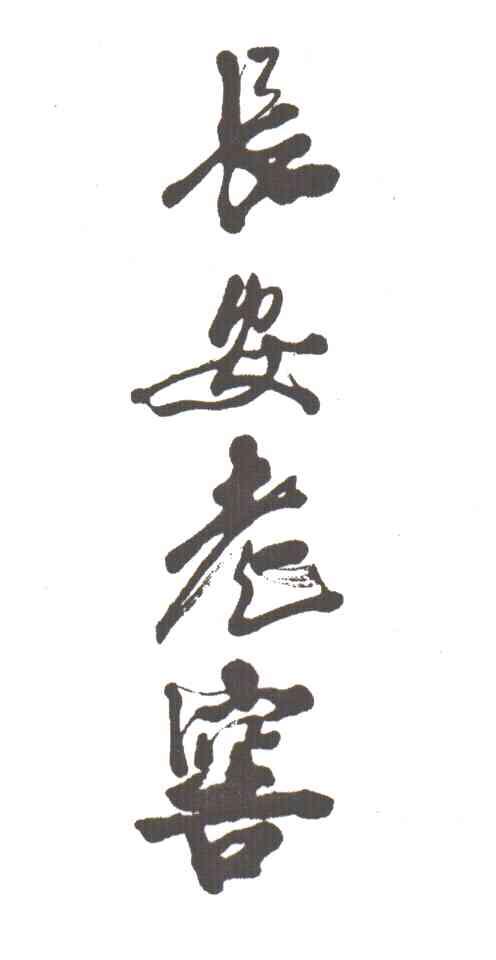 長安老窖